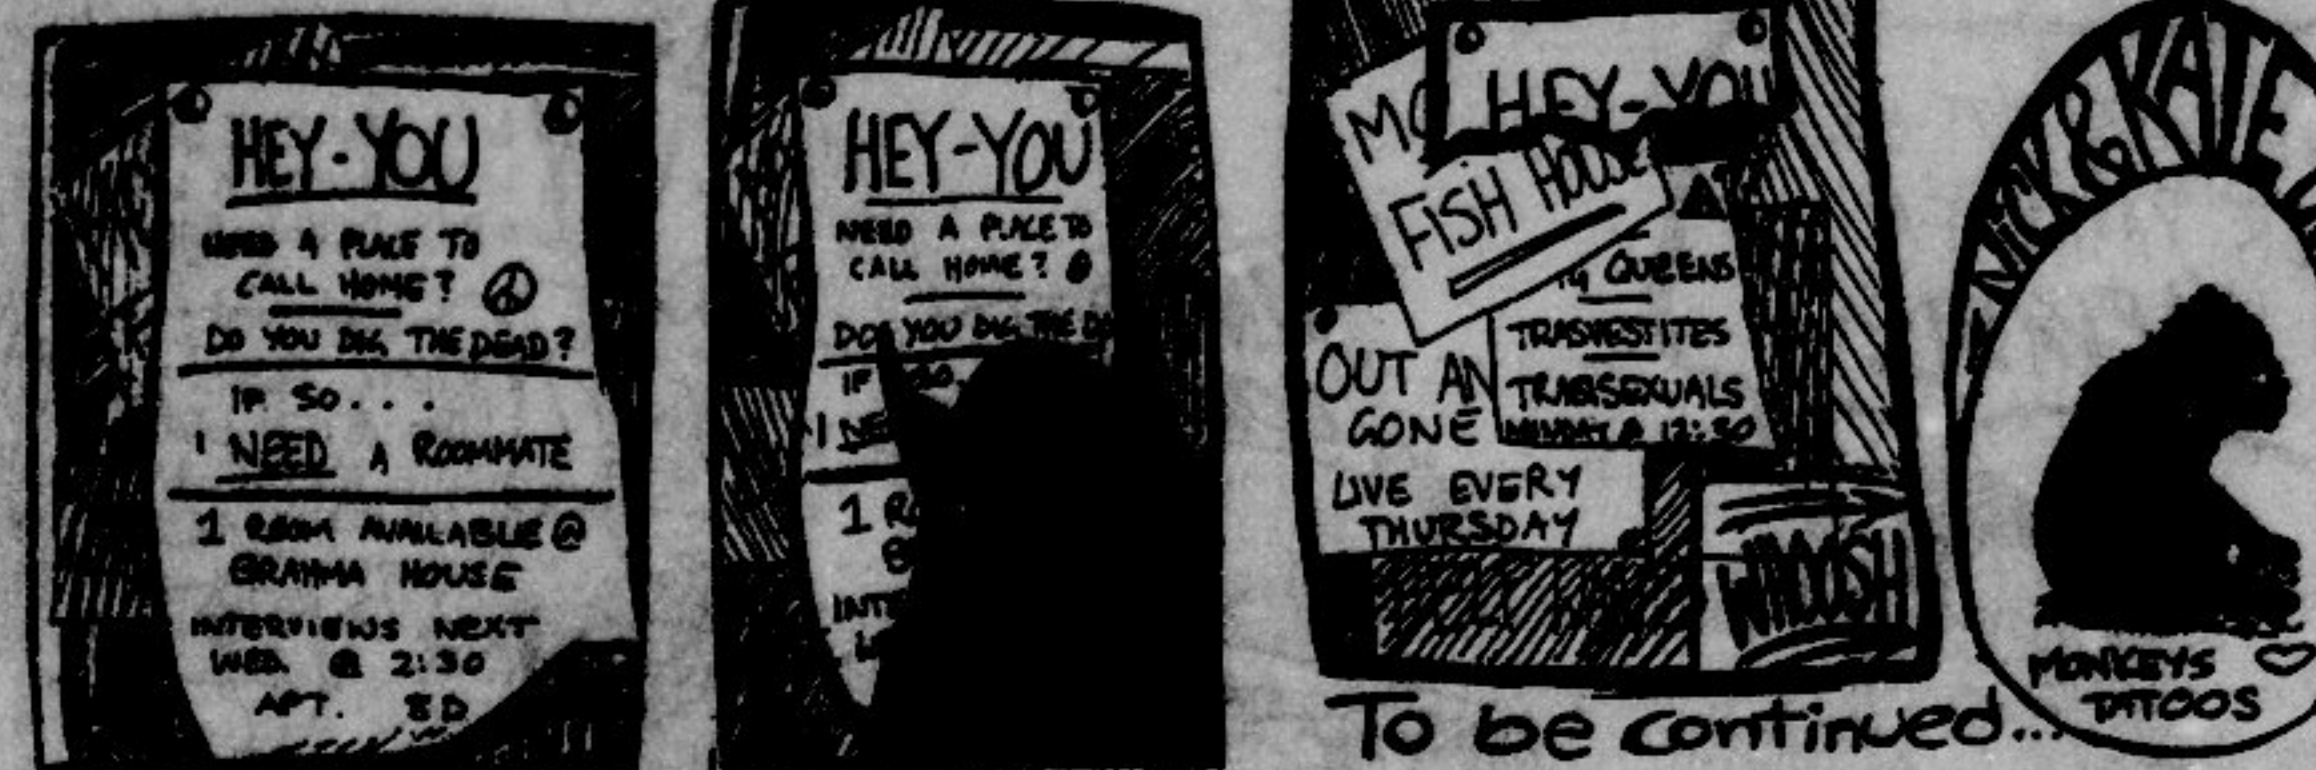 HEY-YOU
NEED A PLACE TO
CALL HOME?
DO YOU DIG THE DEAD?
IF SO...
I NEED A ROOMMATE
1 ROOM AVAILABLE @
BRAHMA HOUSE
INTERVIEWS NEXT
WED. @ 2:30
APT. 8D
HEY-YOU
NEED A PLACE TO
CALL HOME?
DO YOU DIG THE DE
IF SO.
I NEE
1 RO
B
INTE
W
MO
HEY-YOU
FISH HOUSE
QUEENS
TRASVESTITES
TRABSEXUALS
@ 12:30
OUT AN
GONE
LIVE EVERY
THURSDAY
WHOOSH
To be continued...
NICK & KATE
MONKEYS
TATTOOS